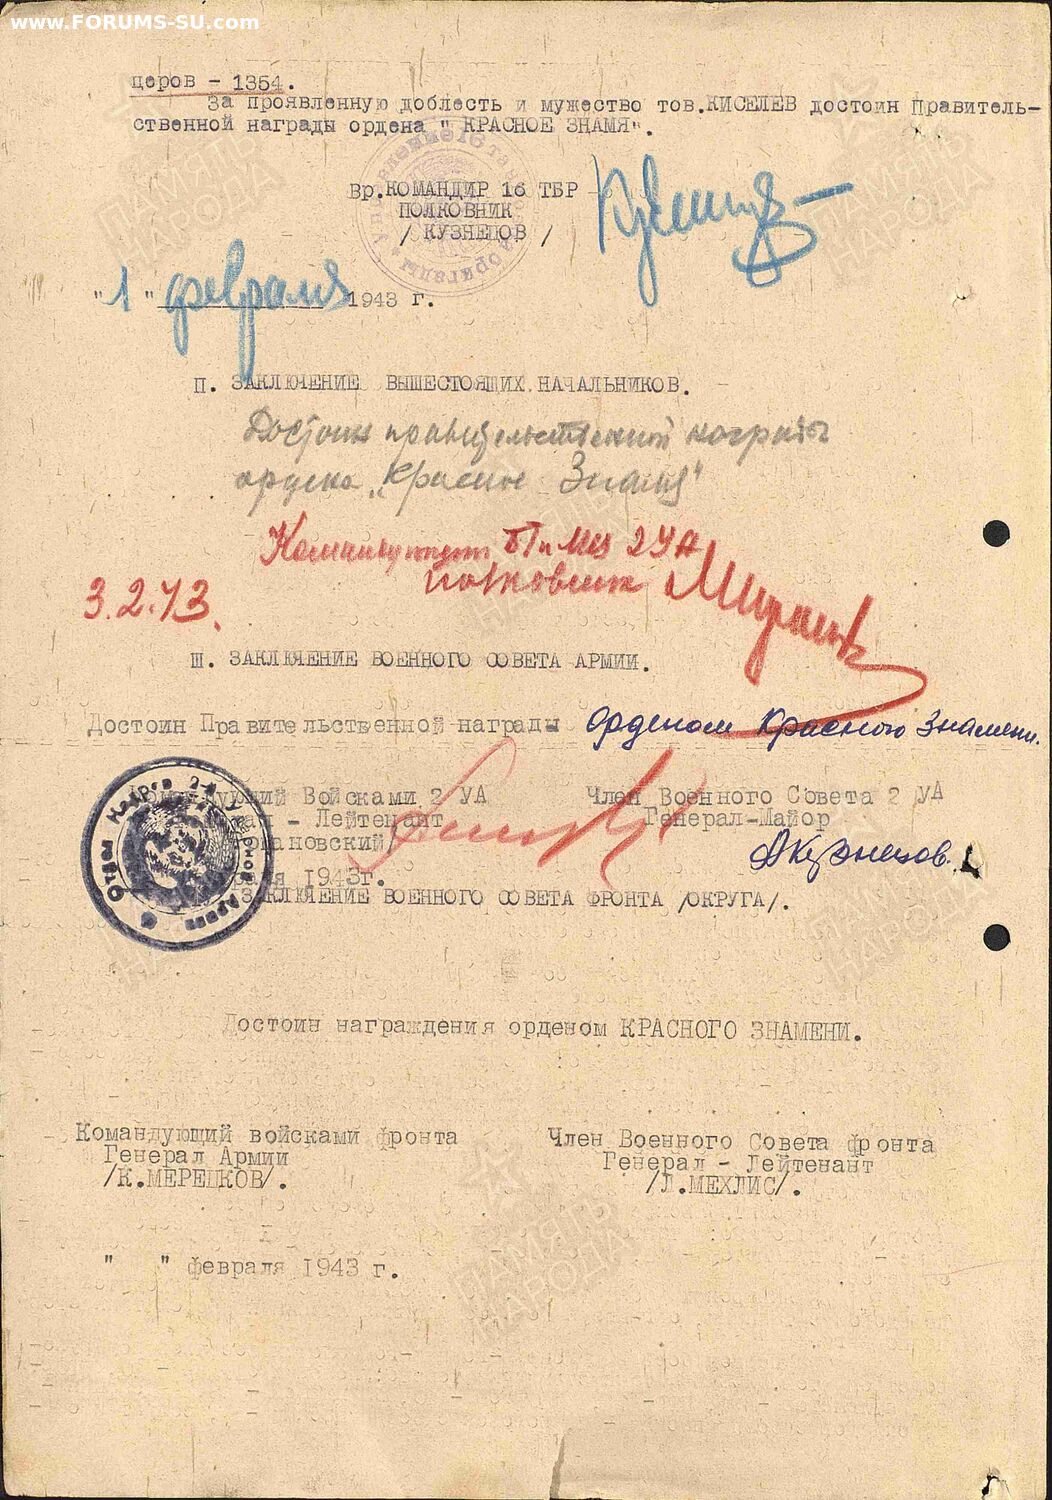 www.FORUMS-SU.com
церов - 1354.
За проявленную доблесть и мужество тов.КИСЕЛЕВ достоин Правитель-
ственной награды ордена " КРАСНОЕ ЗНАМЯ".
Вр.КОМАНДИР 16 ТБР
ПОЛКОВНИК
/ КУЗНЕЦОВ /
"1" февраля 1943 г.
П. ЗАКЛЮЧЕНИЕ ВЫШЕСТОЯЩИХ НАЧАЛЬНИКОВ.
Достоин правительственной награды
ордена „Красное Знамя"
БТ и МВ 2УА
полковник
3.2.43.
Ш. ЗАКЛЮЧЕНИЕ ВОЕННОГО СОВЕТА АРМИИ.
Достоин Правительственной награды орденом Красного Знамени.
Войсками 2 УА Член Военного Совета 2 УА
- Лейтенант Генерал-Майор
1943г.
ЗАКЛЮЧЕНИЕ ВОЕННОГО СОВЕТА ФРОНТА /ОКРУГА/.
Достоин награждения орденом КРАСНОГО ЗНАМЕНИ.
Командующий войсками фронта Член Военного Совета фронта
Генерал Армии Генерал - Лейтенант
/К.МЕРЕЦКОВ/. /Л.МЕХЛИС/.
" " февраля 1943 г.
ПАМЯТЬ НАРОДА